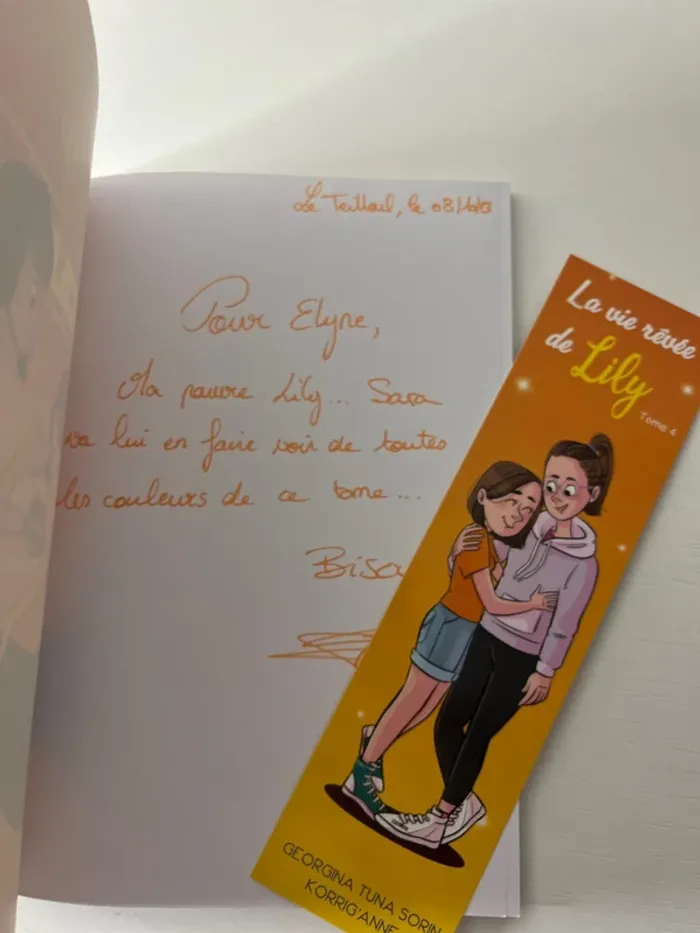 Le Teilleul, le 08/10/23
Pour Elyne,
Ma pauvre Lily... Sara
va lui en faire voir de toutes
les couleurs de ce tome...
Biso
La vie rêvée
de Lily
Tome 4
GEORGINA TUNA SORIN
KORRIG'ANNE